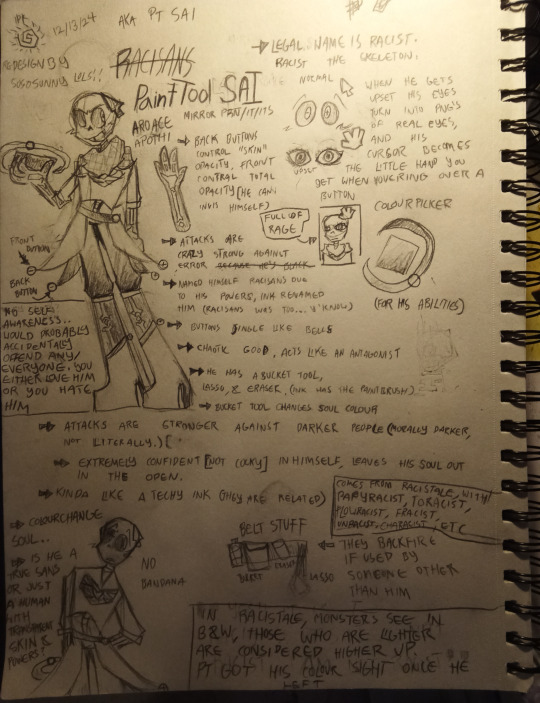 12/13/24
AKA PT SAI
REDESIGN BY
SUSOSUNNY LOLS!!
RACISANS
PaintTool SAI
MIRROR PT/IT/ITS
AROACE
APOTHI
→ LEGAL NAME IS RACIST.
RACIST THE SKELETON.
NORMAL
UPSET
WHEN HE GETS
UPSET HIS EYES
TURN INTO PNG'S
OF REAL EYES,
AND HIS
CURSOR BECOMES
THE LITTLE HAND YOU
GET WHEN HOVERING OVER A
BUTTON
→ BACK BUTTONS
CONTROL "SKIN"
OPACITY, FRONT
CONTROL TOTAL
OPACITY (HE CAN
INVIS HIMSELF)
FULL OF
RAGE
COLOUR PICKER
(FOR HIS ABILITIES)
FRONT
BUTTON
BACK
BUTTON
→ ATTACKS ARE
CRAZY STRONG AGAINST
ERROR BECAUSE HE'S BLACK
→ NAMED HIMSELF RACISANS DUE
TO HIS POWERS, INK RENAMED
HIM (RACISANS WAS TOO... Y'KNOW)
→ BUTTONS JINGLE LIKE BELLS
→ CHAOTIC GOOD, ACTS LIKE AN ANTAGONIST
→ HE HAS A BUCKET TOOL,
LASSO, & ERASER, (INK HAS THE PAINTBRUSH)
→ BUCKET TOOL CHANGES SOUL COLOUR
NO SELF
AWARENESS..
WOULD PROBABLY
ACCIDENTALLY
OFFEND ANY/
EVERYONE. YOU
EITHER LOVE HIM
OR YOU HATE
HIM
→ ATTACKS ARE STRONGER AGAINST DARKER PEOPLE (MORALLY DARKER,
NOT LITERALLY.)
→ EXTREMELY CONFIDENT [NOT COCKY] IN HIMSELF, LEAVES HIS SOUL OUT
IN THE OPEN.
→ KINDA LIKE A TECHY INK (THEY ARE RELATED)
COMES FROM RACISTALE, WITH
PAPYRACIST, TORACIST,
FRACIST
CHARACIST, ETC
→ COLOURCHANGE
SOUL..
→ IS HE A
TRUE SANS
OR JUST
A HUMAN
WITH
TRANSPARENT
SKIN &
POWERS?
NO
BANDANA
BELT STUFF
BUCKET
ERASER
LASSO
← THEY BACKFIRE
IF USED BY
SOMEONE OTHER
THAN HIM
IN RACISTALE, MONSTERS SEE IN
B&W, THOSE WHO ARE LIGHTER
ARE CONSIDERED HIGHER UP.
PT GOT HIS COLOUR SIGHT ONCE HE
LEFT